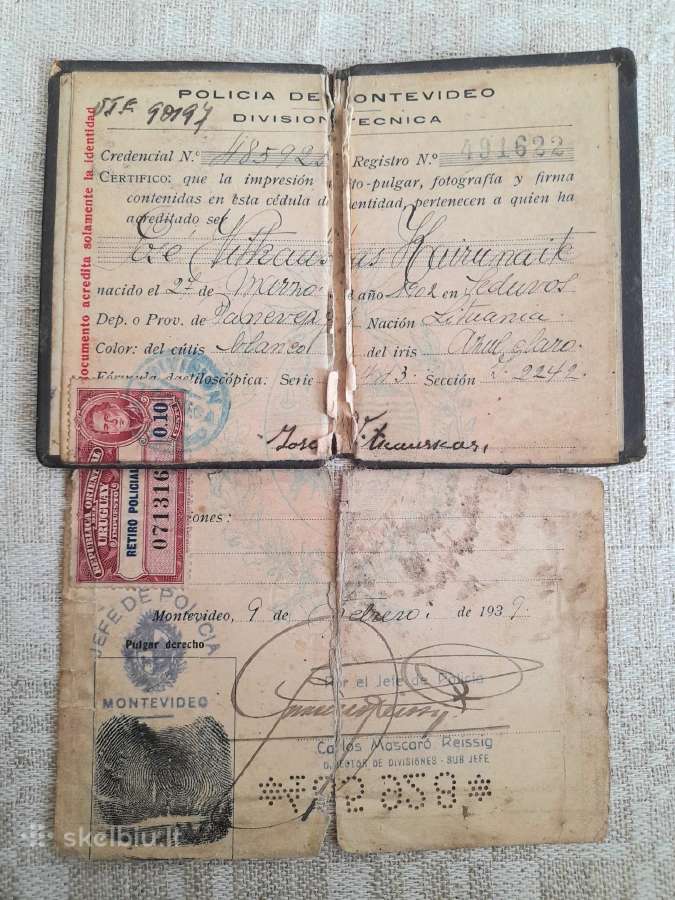 POLICIA DE MONTEVIDEO
DIVISION TECNICA
90197
Credencial N.º 485923 Registro N.º 491622
CERTIFICO: que la impresión to-pulgar, fotografía y firma
contenidas en esta cédula de entidad, pertenecen a quien ha
acreditado ser
José Vitkauskas Kairunaite
nacido el 27 de Marzo d año 1902 en Seduvos
Dep. o Prov. de Panevezys Nación Lituania
Color: del cútis blanco del iris Azul claro
Fórmula dactiloscópica: Serie Sección 2242
José Vitkauskas,
documento acredita solamente la identidad
REPUBLICA ORIENTAL
DEL
URUGUAY
IMPUESTO
RETIRO POLICIAL
071316
0.10
ones:
Montevideo, 9 de Febrero de 1939
JEFE DE POLICIA
MONTEVIDEO
Pulgar derecho
Por el Jefe de Policía
Carlos Mascaró Reissig
DIRECTOR DE DIVISIONES - SUB JEFE
skelbiu.lt